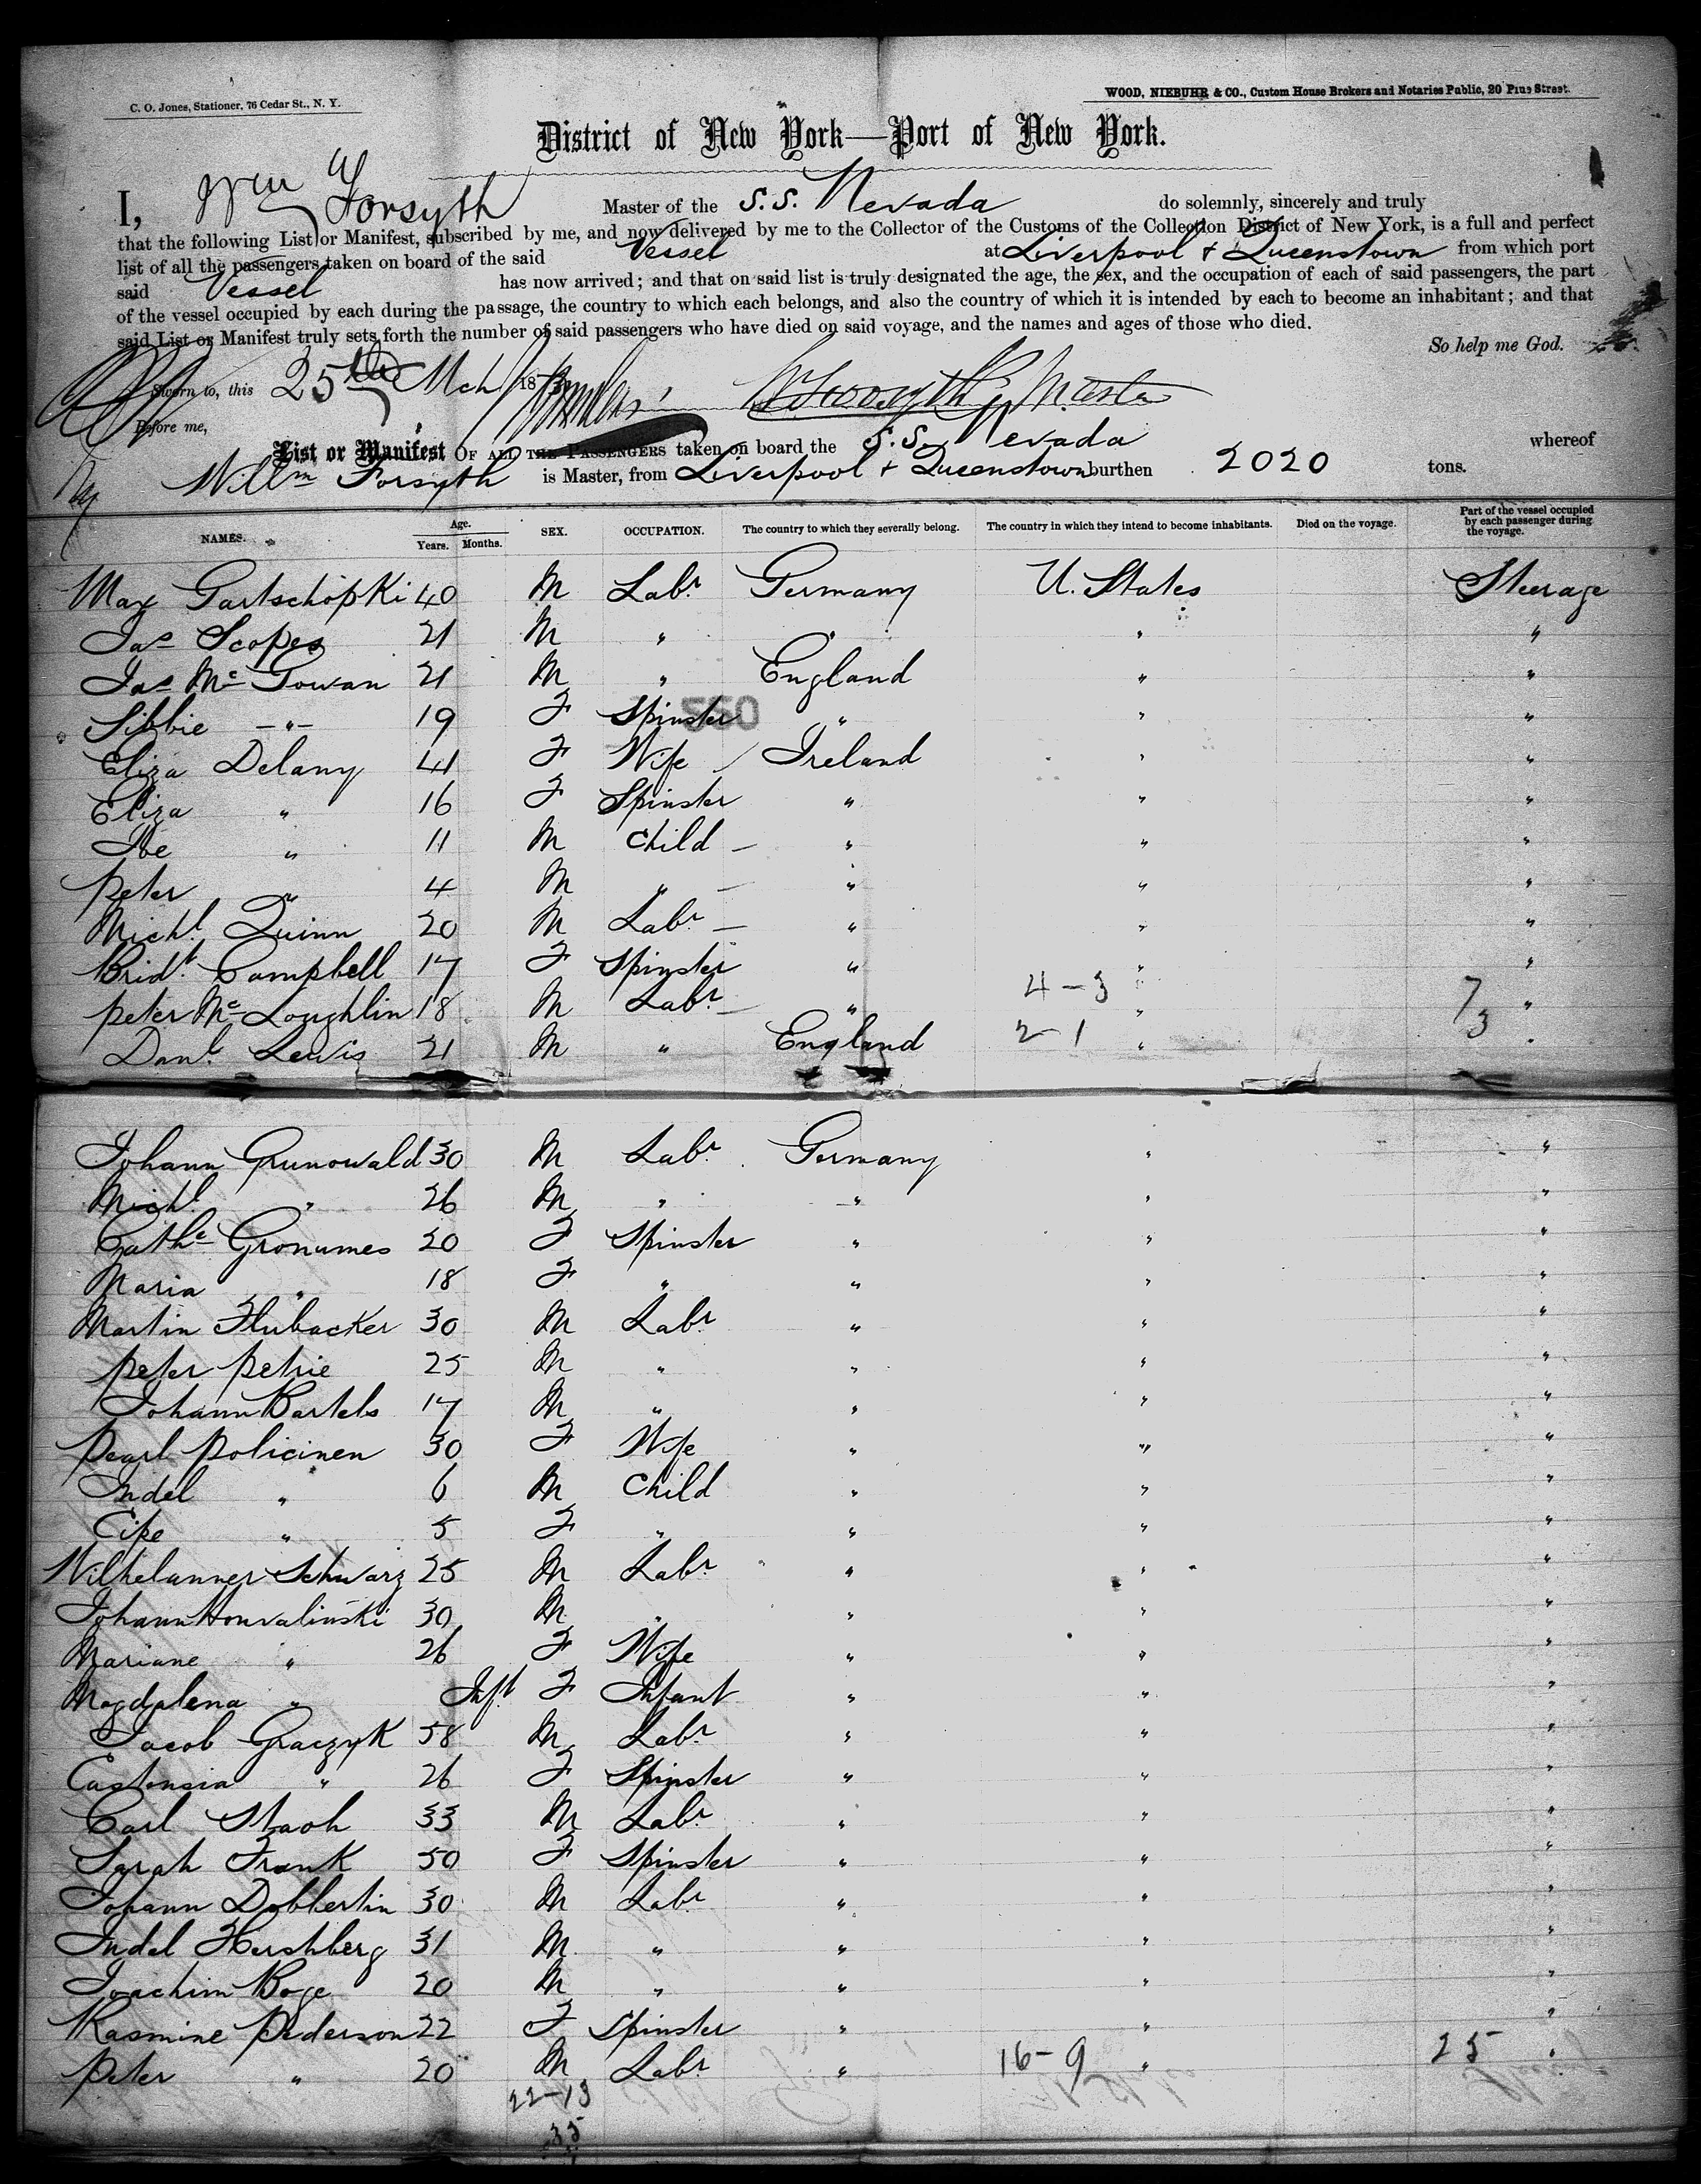 C. O. Jones, Stationer, 76 Cedar St., N. Y.
WOOD, NIEBUHR & CO., Custom House Brokers and Notaries Public, 20 Pine Street.
District of New York—Port of New York.
I, Wm Forsyth Master of the S.S. Nevada do solemnly, sincerely and truly
that the following List or Manifest, subscribed by me, and now delivered by me to the Collector of the Customs of the Collection District of New York, is a full and perfect
list of all the passengers taken on board of the said Vessel at Liverpool & Queenstown from which port
said Vessel has now arrived; and that on said list is truly designated the age, the sex, and the occupation of each of said passengers, the part
of the vessel occupied by each during the passage, the country to which each belongs, and also the country of which it is intended by each to become an inhabitant; and that
said List or Manifest truly sets forth the number of said passengers who have died on said voyage, and the names and ages of those who died.
So help me God.
Sworn to, this 25th Mch 18
Before me,
List or Manifest OF ALL THE PASSENGERS taken on board the S.S. Nevada whereof
Willm Forsyth is Master, from Liverpool & Queenstown burthen 2020 tons.
NAMES. Age. Years. Months. SEX. OCCUPATION. The country to which they severally belong. The country in which they intend to become inhabitants. Died on the voyage. Part of the vessel occupied by each passenger during the voyage.
Max Gartschopki 40 M Labr Germany U. States Steerage
Jas Scopes 21 M " " " "
Jas McGowan 21 M " England " "
Sibbie —"— 19 F Spinster " " "
550
Eliza Delany 41 F Wife Ireland " "
Eliza " 16 F Spinster " " "
Joe " 11 M Child " " "
Peter " 4 M " " " "
Michl Quinn 20 M Labr " " "
Bridt Campbell 17 F Spinster " " "
Peter McLoughlin 18 M Labr " 4-3 " 7 "
Danl Lewis 21 M " England 2-1 " 3 "
Johann Grunowald 30 M Labr Germany " "
Michl " 26 M " " " "
Cathe Gronumes 20 F Spinster " " "
Maria " 18 F " " " "
Martin Flubacker 30 M Labr " " "
Peter Petrie 25 M " " " "
Johann Bartels 17 M " " " "
Pearl Policinen 30 F Wife " " "
Indel " 6 M Child " " "
Cipe " 5 F " " " "
Wilhelanner Schwarz 25 M Labr " " "
Johann Honvalinski 30 M " " " "
Mariane " 26 F Wife " " "
Magdalena " Inft F Infant " " "
Jacob Graczyk 58 M Labr " " "
Castensia " 26 F Spinster " " "
Carl Staoh 33 M Labr " " "
Sarah Frank 50 F Spinster " " "
Johann Dobbertin 30 M Labr " " "
Judel Hershberg 31 M " " " "
Joachim Boge 20 M " " " "
Rasmine Pederson 22 F Spinster " " "
Peter " 20 M Labr " 16-9 " 25 "
22-13
35